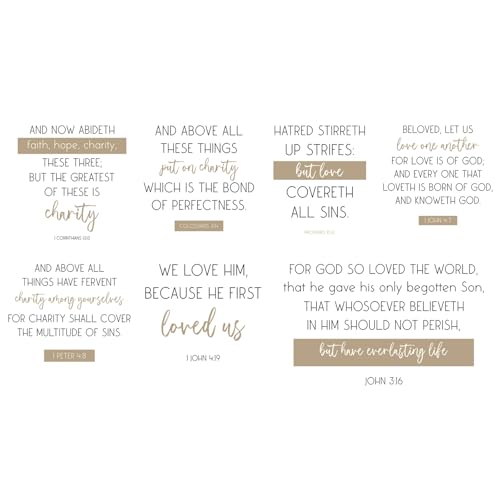 AND NOW ABIDETH
faith, hope, charity,
THESE THREE;
BUT THE GREATEST
OF THESE IS
charity
1 CORINTHIANS 13:13
AND ABOVE ALL
THESE THINGS
put on charity
WHICH IS THE BOND
OF PERFECTNESS.
COLOSSIANS 3:14
HATRED STIRRETH
UP STRIFES:
but love
COVERETH
ALL SINS.
PROVERBS 10:12
BELOVED, LET US
love one another:
FOR LOVE IS OF GOD;
AND EVERY ONE THAT
LOVETH IS BORN OF GOD,
AND KNOWETH GOD.
1 JOHN 4:7
AND ABOVE ALL
THINGS HAVE FERVENT
charity among yourselves
FOR CHARITY SHALL COVER
THE MULTITUDE OF SINS.
1 PETER 4:8
WE LOVE HIM,
BECAUSE HE FIRST
loved us
1 JOHN 4:19
FOR GOD SO LOVED THE WORLD,
that he gave his only begotten Son,
THAT WHOSOEVER BELIEVETH
IN HIM SHOULD NOT PERISH,
but have everlasting life
JOHN 3:16